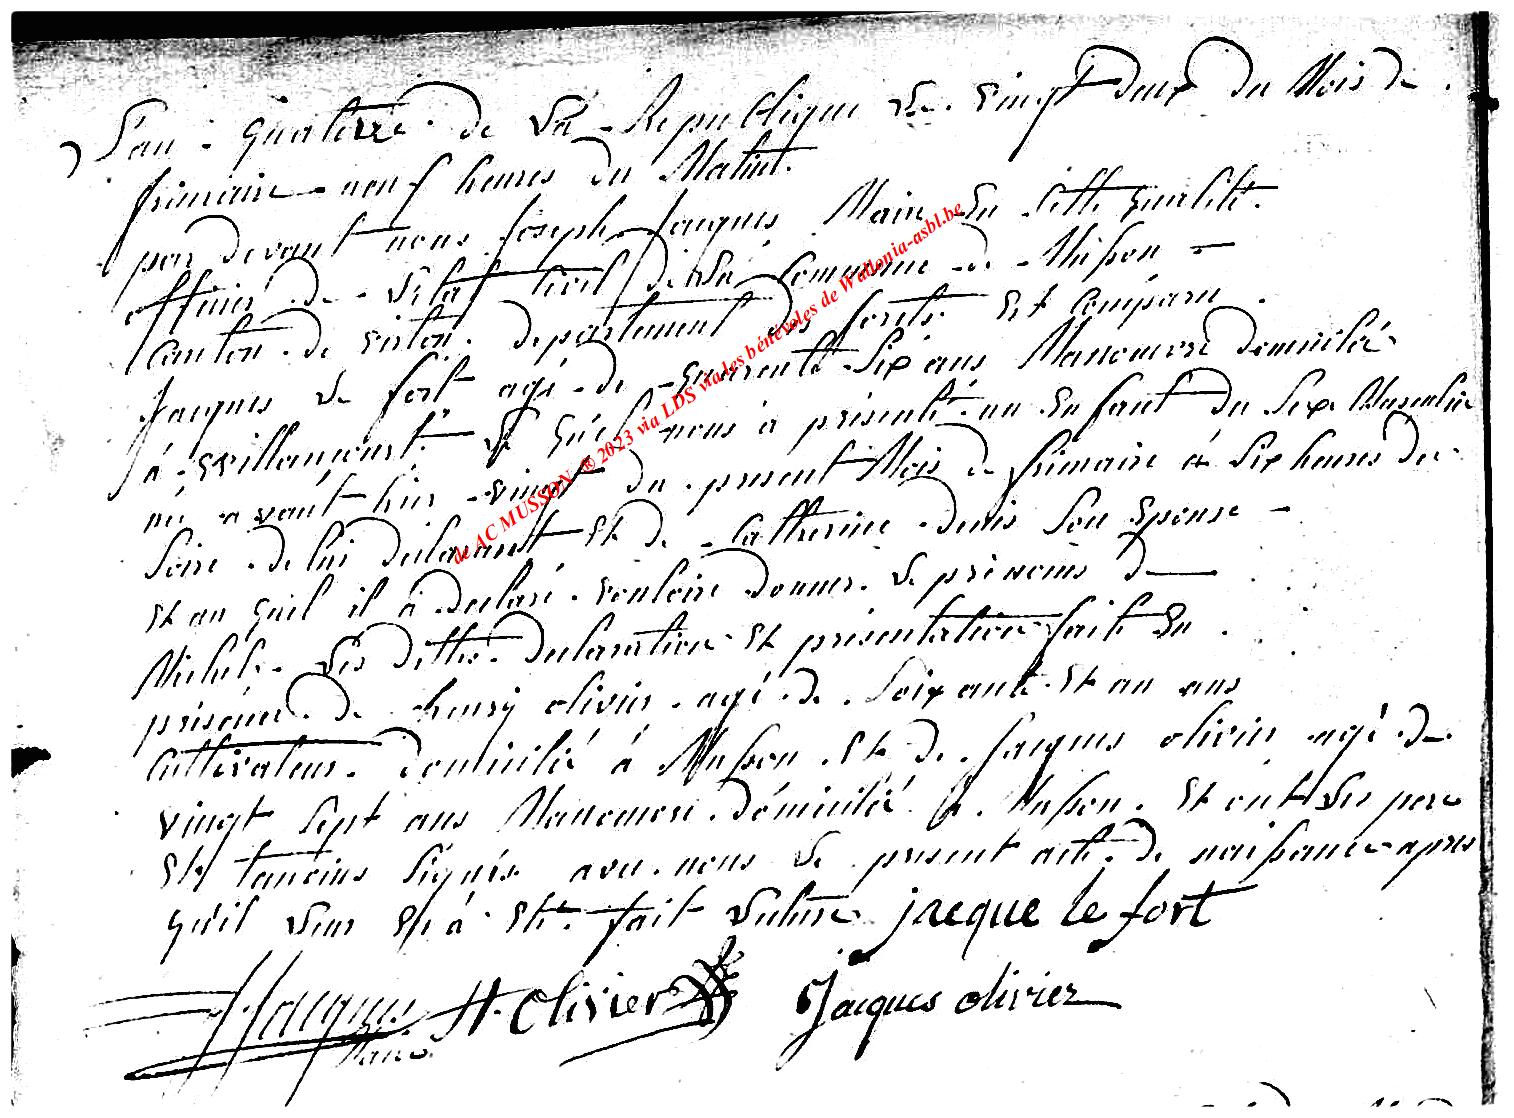 L'an quatorze de la Republique le vingt deux du Mois de
frimaire neuf heures du Matint.
par devant nous Joseph Jacques Maire En Cette qualité
officié de l'Etat Civil de la Commune de Musson
Canton de virton departement des forêts Est Comparu
Jacques le fort agé de quarente Six ans Manoeuvre domicilié
à willancourt le quel nous à présenté un Enfant du Sexe Masculin
né avant hier vingt du present Mois de frimaire à Six heures du
Soire de lui declarant Et de Catherine denis Son Epouse
Et au quel il à declaré vouloire donner le prénoms de
Michel. les dittes declaration Et présentation fait En
présence de henry olivier agé de Soixante Et un ans
Cultivateur domicilié à Musson Et de Jacques olivier agé de
vingt Sept ans Manoeuvre domicilié à Musson. Et ont les pere
Et temoins Signés avec nous le present acte de naissance apres
qu'il leur En à Eté fait lecture jacque le fort
JJacques H. Olivier Jacques olivier
Maire
de AC MUSSON @ 2023 via LDS via les bénévoles de Wallonia-asbl.be